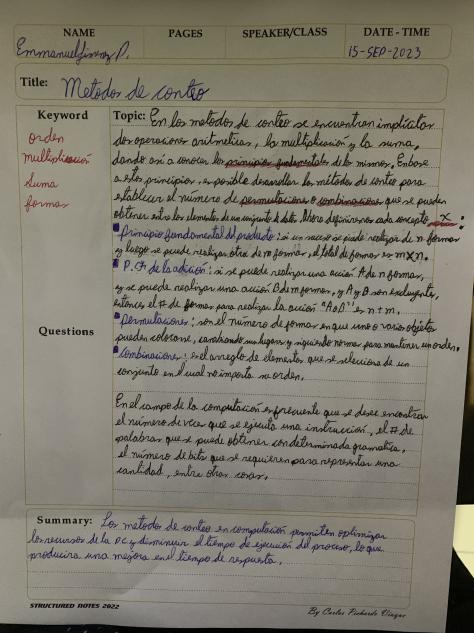 NAME PAGES SPEAKER/CLASS DATE - TIME
Emmanuel Jimenez P. 15-SEP-2023
Title: Metodos de conteo
Keyword
orden
multiplicación
suma
formas
Topic: En los metodos de conteo se encuentran implícitas
dos operaciones aritmeticas, la multiplicación y la suma,
dando así a conocer los principios fundamentales de los mismos. En base
a estos principios, es posible desarrollar los métodos de conteo para
establecer el número de permutaciones o combinaciones que se pueden
obtener entre los elementos de un conjunto de datos. Ahora definiremos cada concepto
Principio fundamental del producto: si un suceso se puede realizar de n formas
y luego se puede realizar otra de m formas, el total de formas es m x n.
P. F. de la adición: si se puede realizar una acción A de n formas,
y se puede realizar una acción B de m formas, y A y B son excluyentes,
entonces el # de formas para realizar la acción "A o B" es n + m.
Permutaciones: son el número de formas en que uno o varios objetos
pueden colocarse, cambiando sus lugares y siguiendo normas para mantener un orden.
Combinaciones: es el arreglo de elementos que se selecciona de un
conjunto en el cual no importa su orden.
Questions
En el campo de la computación es frecuente que se desee encontrar
el número de veces que se ejecuta una instrucción, el # de
palabras que se puede obtener con determinada gramatica,
el número de bits que se requieren para representar una
cantidad, entre otras cosas.
Summary: Los metodos de conteo en computación permiten optimizar
los recursos de la PC y disminuir el tiempo de ejecución del proceso, lo que
producira una mejora en el tiempo de respuesta.
STRUCTURED NOTES 2022
By Carlos Pichardo Viuque